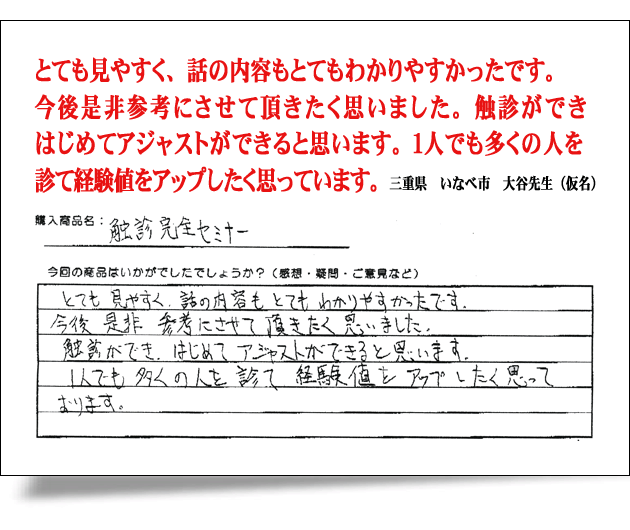 とても見やすく、話の内容もとてもわかりやすかったです。
今後是非参考にさせて頂きたく思いました。触診ができ
はじめてアジャストができると思います。1人でも多くの人を
診て経験値をアップしたく思っています。三重県　いなべ市　大谷先生（仮名）
購入商品名：触診完全セミナー
今回の商品はいかがでしたでしょうか？（感想・疑問・ご意見など）
とても見やすく、話の内容もとてもわかりやすかったです。
今後是非参考にさせて頂きたく思いました。
触診ができ、はじめてアジャストができると思います。
1人でも多くの人を診て経験値をアップしたく思って
おります。